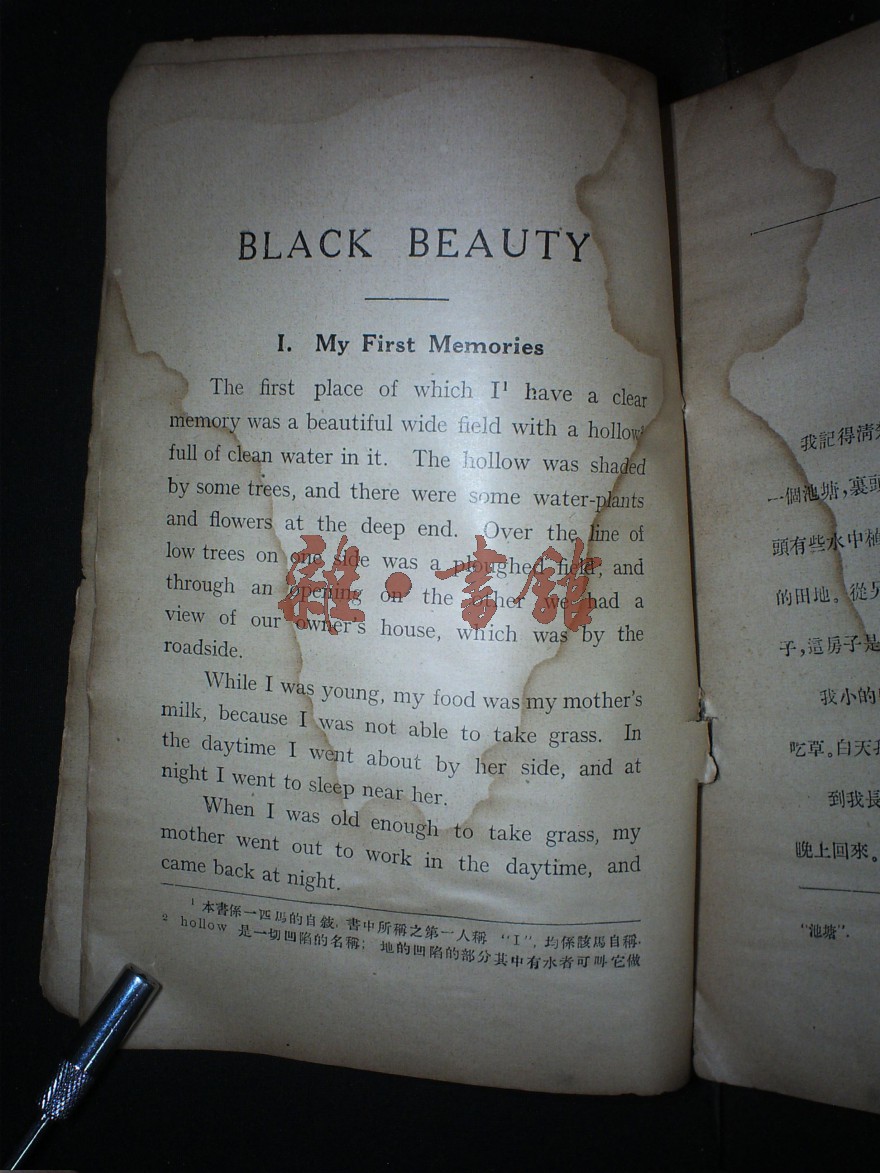 BLACK BEAUTY
I. My First Memories
The first place of which I¹ have a clear
memory was a beautiful wide field with a hollow²
full of clean water in it. The hollow was shaded
by some trees, and there were some water-plants
and flowers at the deep end. Over the line of
low trees on one side was a ploughed field, and
through an opening on the other we had a
view of our owner's house, which was by the
roadside.
While I was young, my food was my mother's
milk, because I was not able to take grass. In
the daytime I went about by her side, and at
night I went to sleep near her.
When I was old enough to take grass, my
mother went out to work in the daytime, and
came back at night.
¹ 本書係一匹馬的自敍，書中所稱之第一人稱 "I"，均係該馬自稱．
² hollow 是一切凹陷的名稱；地的凹陷的部分其中有水者可叫它做
雜·書館
我記得清
一個池塘，裏頭
頭有些水中植
的田地。從另
子，這房子是
我小的
吃草。白天我
到我長
晚上回來。
"池塘"．